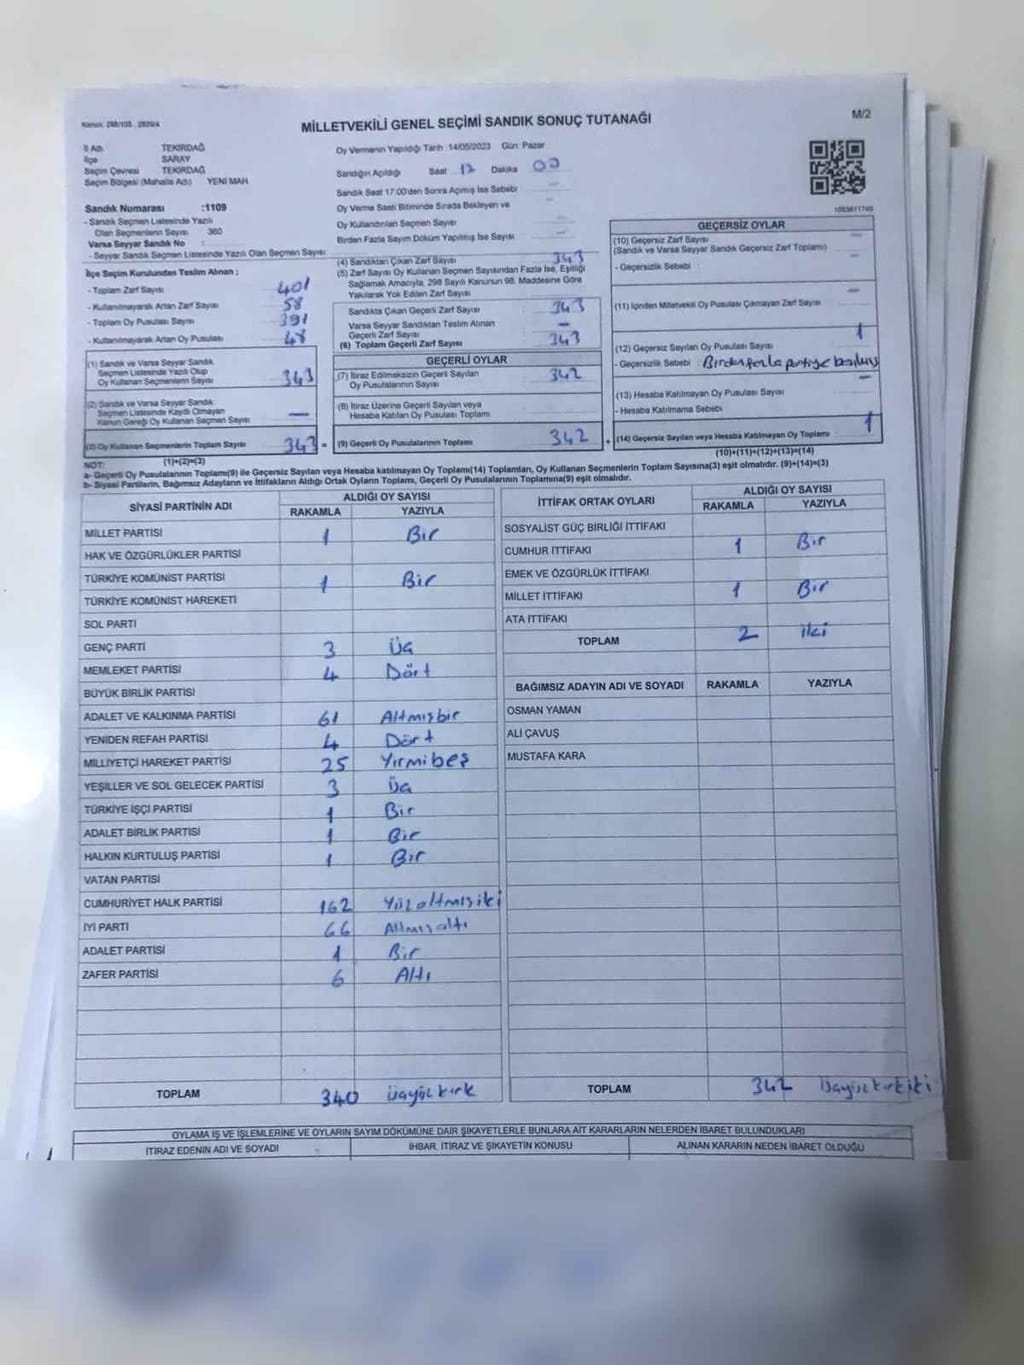 Kanun: 298/105 , 2839/4
M/2
MİLLETVEKİLİ GENEL SEÇİMİ SANDIK SONUÇ TUTANAĞI
İl Adı TEKİRDAĞ
İlçe SARAY
Seçim Çevresi TEKİRDAĞ
Seçim Bölgesi (Mahalle Adı) YENİ MAH
Oy Vermenin Yapıldığı Tarih :14/05/2023 Gün: Pazar
Sandığın Açıldığı Saat 17 Dakika 00
Sandık Saat 17:00'den Sonra Açılmış İse Sebebi
Oy Verme Saati Bitiminde Sırada Bekleyen ve
Oy Kullandırılan Seçmen Sayısı
Birden Fazla Sayım Döküm Yapılmış İse Sayısı
Sandık Numarası :1109
- Sandık Seçmen Listesinde Yazılı
Olan Seçmenlerin Sayısı 360
Varsa Seyyar Sandık No :
- Seyyar Sandık Seçmen Listesinde Yazılı Olan Seçmen Sayısı
İlçe Seçim Kurulundan Teslim Alınan ;
- Toplam Zarf Sayısı 401
- Kullanılmayarak Artan Zarf Sayısı 58
- Toplam Oy Pusulası Sayısı 391
- Kullanılmayarak Artan Oy Pusulası 48
(1) Sandık ve Varsa Seyyar Sandık
Seçmen Listesinde Yazılı Olup
Oy Kullanan Seçmenlerin Sayısı 343
(2) Sandık ve Varsa Seyyar Sandık
Seçmen Listesinde Kaydı Olmayan
Kanun Gereği Oy Kullanan Seçmen Sayısı —
(3) Oy Kullanan Seçmenlerin Toplam Sayısı 343 =
(1)+(2)=(3)
(4) Sandıktan Çıkan Zarf Sayısı 343
(5) Zarf Sayısı Oy Kullanan Seçmen Sayısından Fazla İse, Eşitliği
Sağlamak Amacıyla, 298 Sayılı Kanunun 98. Maddesine Göre
Yakılarak Yok Edilen Zarf Sayısı
Sandıkta Çıkan Geçerli Zarf Sayısı 343
Varsa Seyyar Sandıktan Teslim Alınan
Geçerli Zarf Sayısı —
(6) Toplam Geçerli Zarf Sayısı 343
GEÇERLİ OYLAR
(7) İtiraz Edilmeksizin Geçerli Sayılan
Oy Pusulalarının Sayısı 342
(8) İtiraz Üzerine Geçerli Sayılan veya
Hesaba Katılan Oy Pusulası Toplamı
(9) Geçerli Oy Pusulalarının Toplamı 342 +
GEÇERSİZ OYLAR
(10) Geçersiz Zarf Sayısı —
(Sandık ve Varsa Seyyar Sandık Geçersiz Zarf Toplamı)
- Geçersizlik Sebebi :
(11) İçinden Milletvekili Oy Pusulası Çıkmayan Zarf Sayısı —
(12) Geçersiz Sayılan Oy Pusulası Sayısı 1
- Geçersizlik Sebebi : Birden fazla partiye basılmış
(13) Hesaba Katılmayan Oy Pusulası Sayısı —
- Hesaba Katılmama Sebebi
(14) Geçersiz Sayılan veya Hesaba Katılmayan Oy Toplamı 1
(10)+(11)+(12)+(13)=(14)
NOT:
a- Geçerli Oy Pusulalarının Toplamı(9) ile Geçersiz Sayılan veya Hesaba katılmayan Oy Toplamı(14) Toplamları, Oy Kullanan Seçmenlerin Toplam Sayısına(3) eşit olmalıdır. (9)+(14)=(3)
b- Siyasi Partilerin, Bağımsız Adayların ve İttifakların Aldığı Ortak Oyların Toplamı, Geçerli Oy Pusulalarının Toplamına(9) eşit olmalıdır.
SİYASİ PARTİNİN ADI ALDIĞI OY SAYISI
RAKAMLA YAZIYLA
MİLLET PARTİSİ 1 Bir
HAK VE ÖZGÜRLÜKLER PARTİSİ
TÜRKİYE KOMÜNİST PARTİSİ 1 Bir
TÜRKİYE KOMÜNİST HAREKETİ
SOL PARTİ
GENÇ PARTİ 3 Üç
MEMLEKET PARTİSİ 4 Dört
BÜYÜK BİRLİK PARTİSİ
ADALET VE KALKINMA PARTİSİ 61 Altmışbir
YENİDEN REFAH PARTİSİ 4 Dört
MİLLİYETÇİ HAREKET PARTİSİ 25 Yirmibeş
YEŞİLLER VE SOL GELECEK PARTİSİ 3 Üç
TÜRKİYE İŞÇİ PARTİSİ 1 Bir
ADALET BİRLİK PARTİSİ 1 Bir
HALKIN KURTULUŞ PARTİSİ 1 Bir
VATAN PARTİSİ
CUMHURİYET HALK PARTİSİ 162 Yüzaltmışiki
İYİ PARTİ 66 Altmışaltı
ADALET PARTİSİ 1 Bir
ZAFER PARTİSİ 6 Altı
TOPLAM 340 üçyüzkırk
İTTİFAK ORTAK OYLARI ALDIĞI OY SAYISI
RAKAMLA YAZIYLA
SOSYALİST GÜÇ BİRLİĞİ İTTİFAKI
CUMHUR İTTİFAKI 1 Bir
EMEK VE ÖZGÜRLÜK İTTİFAKI
MİLLET İTTİFAKI 1 Bir
ATA İTTİFAKI
TOPLAM 2 iki
BAĞIMSIZ ADAYIN ADI VE SOYADI RAKAMLA YAZIYLA
OSMAN YAMAN
ALİ ÇAVUŞ
MUSTAFA KARA
TOPLAM 342 üçyüzkırkiki
OYLAMA İŞ VE İŞLEMLERİNE VE OYLARIN SAYIM DÖKÜMÜNE DAİR ŞİKAYETLERLE BUNLARA AİT KARARLARIN NELERDEN İBARET BULUNDUKLARI
İTİRAZ EDENİN ADI VE SOYADI İHBAR, İTİRAZ VE ŞİKAYETİN KONUSU ALINAN KARARIN NEDEN İBARET OLDUĞU